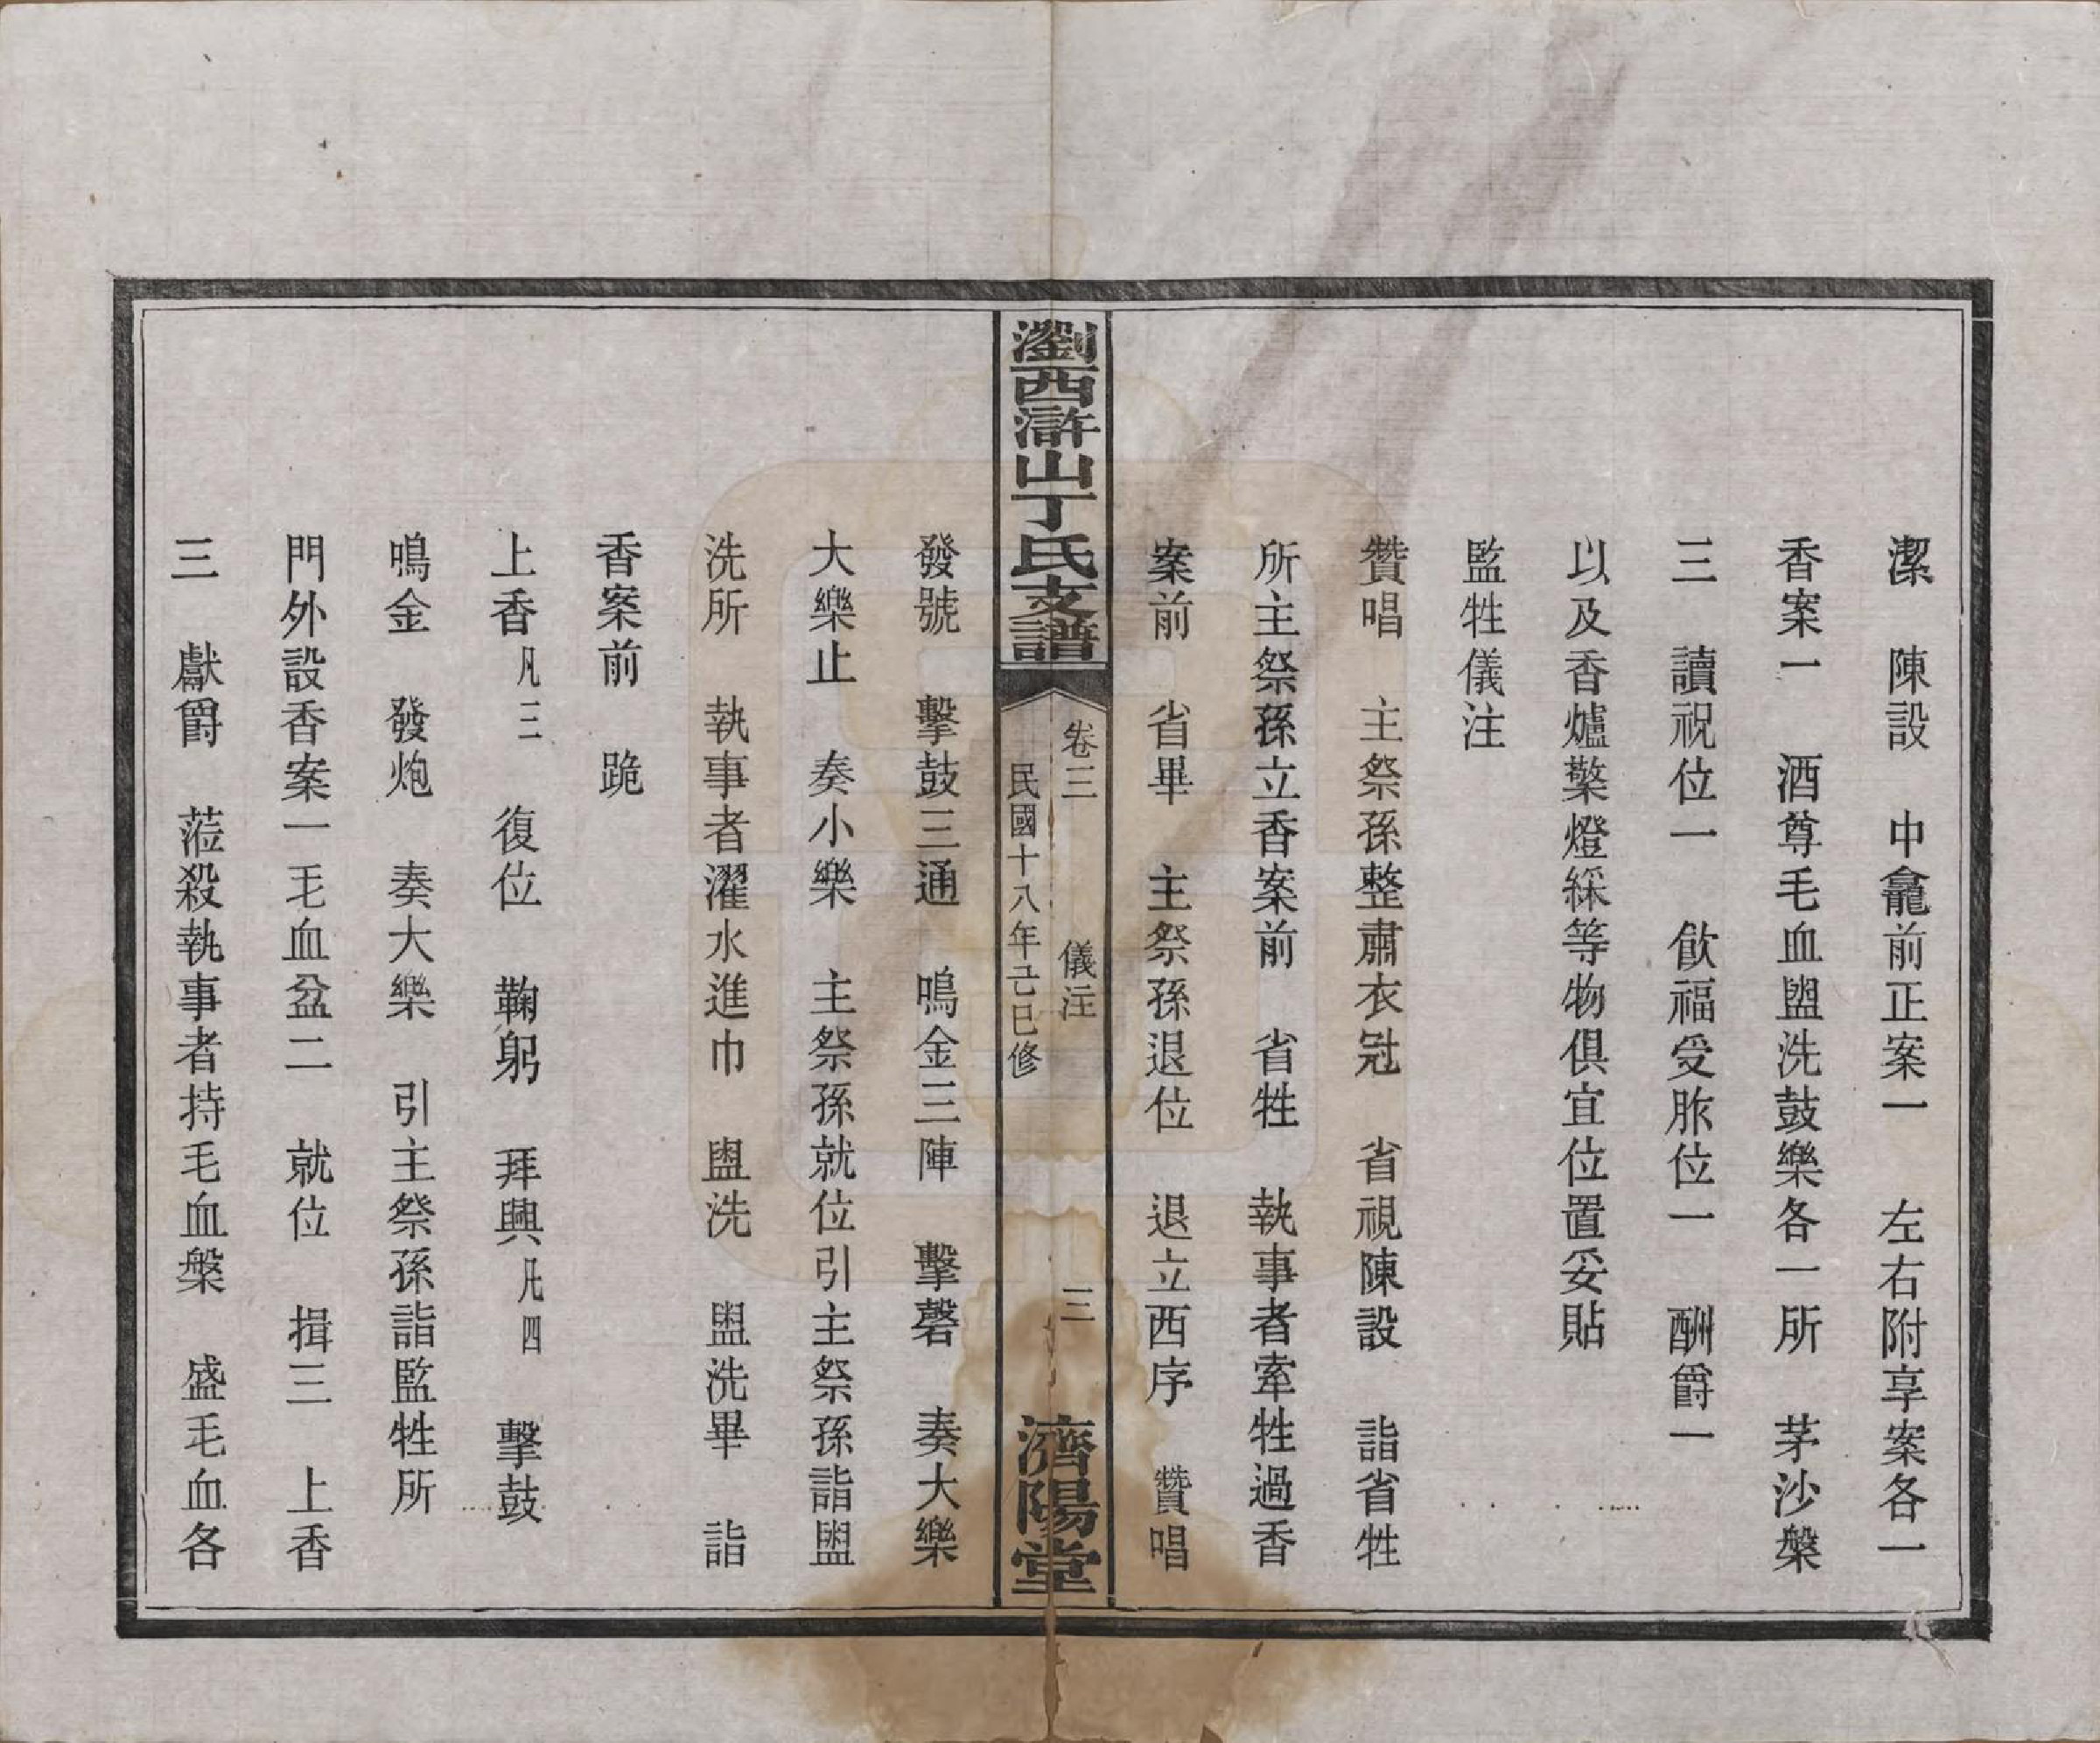 潔　陳設　中龕前正案一　左右附享案各一
香案一　酒尊毛血盥洗鼓樂各一所　茅沙槃
三　讀祝位一　飲福受胙位一　酬爵一
以及香爐檠燈綵等物俱宜位置妥貼
監牲儀注
贊唱　主祭孫整肅衣冠　省視陳設　詣省牲
所主祭孫立香案前　省牲　執事者牽牲過香
案前　省畢　主祭孫退位　退立西序　贊唱
瀏西滸山丁氏支譜
卷三　儀注　三
民國十八年己巳修
濟陽堂
發號　擊鼓三通　鳴金三陣　擊磬　奏大樂
大樂止　奏小樂　主祭孫就位引主祭孫詣盥
洗所　執事者濯水進巾　盥洗　盥洗畢　詣
香案前　跪
上香凡三　復位　鞠躬　拜興凡四　擊鼓
鳴金　發炮　奏大樂　引主祭孫詣監牲所
門外設香案一毛血盆二　就位　揖三　上香
三　獻爵　蒞殺執事者持毛血槃　盛毛血各